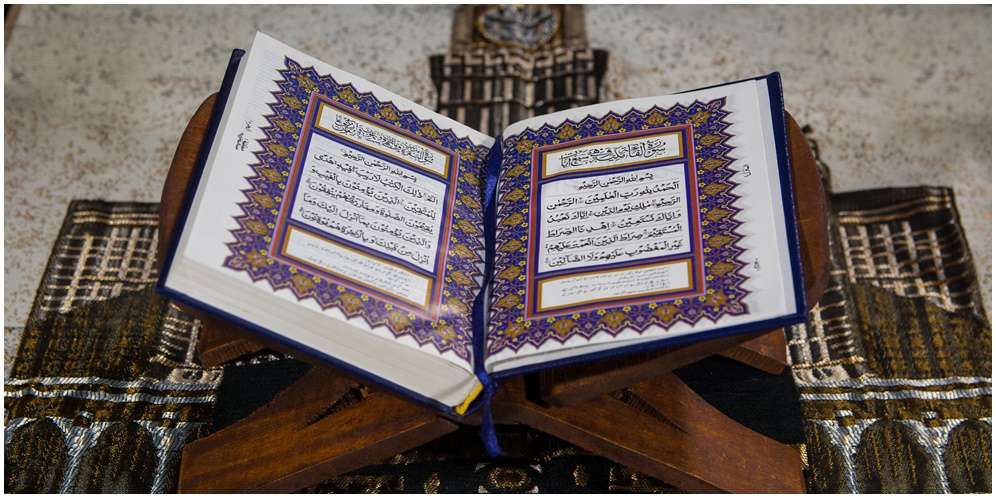 سُوْرَةُ الْفَاتِحَةِ مَكِّيَّةٌ وَّهِيَ سَبْعُ اٰيَاتٍ
بِسْمِ اللهِ الرَّحْمٰنِ الرَّحِيْمِ
اَلْحَمْدُ لِلّٰهِ رَبِّ الْعٰلَمِيْنَ ۝ الرَّحْمٰنِ
الرَّحِيْمِ ۝ مٰلِكِ يَوْمِ الدِّيْنِ ۝ اِيَّاكَ نَعْبُدُ
وَ اِيَّاكَ نَسْتَعِيْنُ ۝ اِهْدِ نَا الصِّرَاطَ
الْمُسْتَقِيْمَ ۝ صِرَاطَ الَّذِيْنَ اَنْعَمْتَ عَلَيْهِمْ
غَيْرِ الْمَغْضُوْبِ عَلَيْهِمْ وَلَا الضَّآلِّيْنَ ۝
بِسْمِ اللهِ الرَّحْمٰنِ الرَّحِيْمِ
الٓمّٓ ۝ ذٰلِكَ الْكِتٰبُ لَا رَيْبَ فِيْهِ هُدًى
لِّلْمُتَّقِيْنَ ۝ الَّذِيْنَ يُؤْمِنُوْنَ بِالْغَيْبِ وَ
يُقِيْمُوْنَ الصَّلٰوةَ وَمِمَّا رَزَقْنٰهُمْ يُنْفِقُوْنَ ۝
وَالَّذِيْنَ يُؤْمِنُوْنَ بِمَآ اُنْزِلَ اِلَيْكَ وَمَآ
اُنْزِلَ مِنْ قَبْلِكَ وَ بِالْاٰخِرَةِ هُمْ يُوْقِنُوْنَ ۝